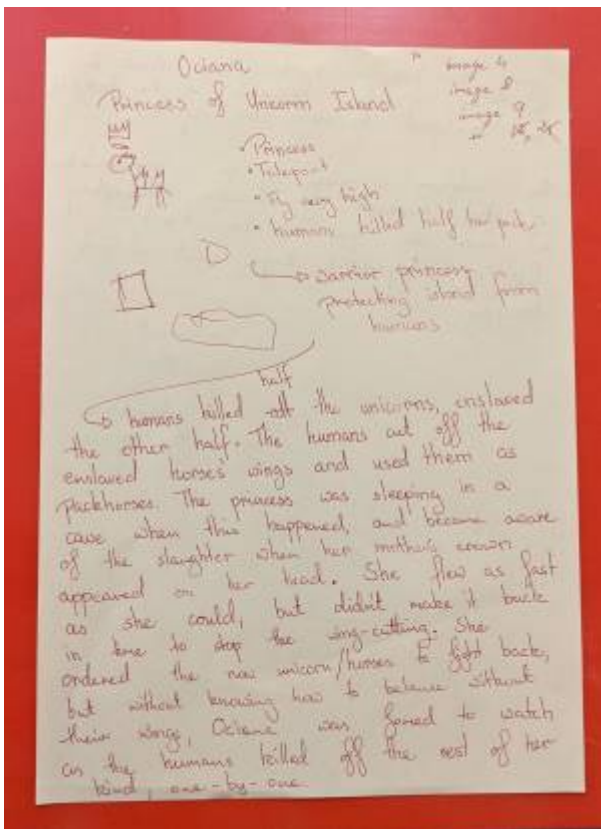 Ociana
Princess of Unicorn Island
image 4
image 8
image 9
• Princess
• Teleport
• Fly very high
• humans killed half her pack
warrior princess
protecting island from
humans
half
humans killed the unicorns, enslaved
the other half. The humans cut off the
enslaved horses wings and used them as
packhorses. The princess was sleeping in a
cave when this happened, and became aware
of the slaughter when her mother's crown
appeared on her head. She flew as fast
as she could, but didn't make it back
in time to stop the wing-cutting. She
ordered the now unicorn/horses to fight back,
but without knowing how to balance without
their wings, Ociana was forced to watch
as the humans killed off the rest of her
kind, one-by-one